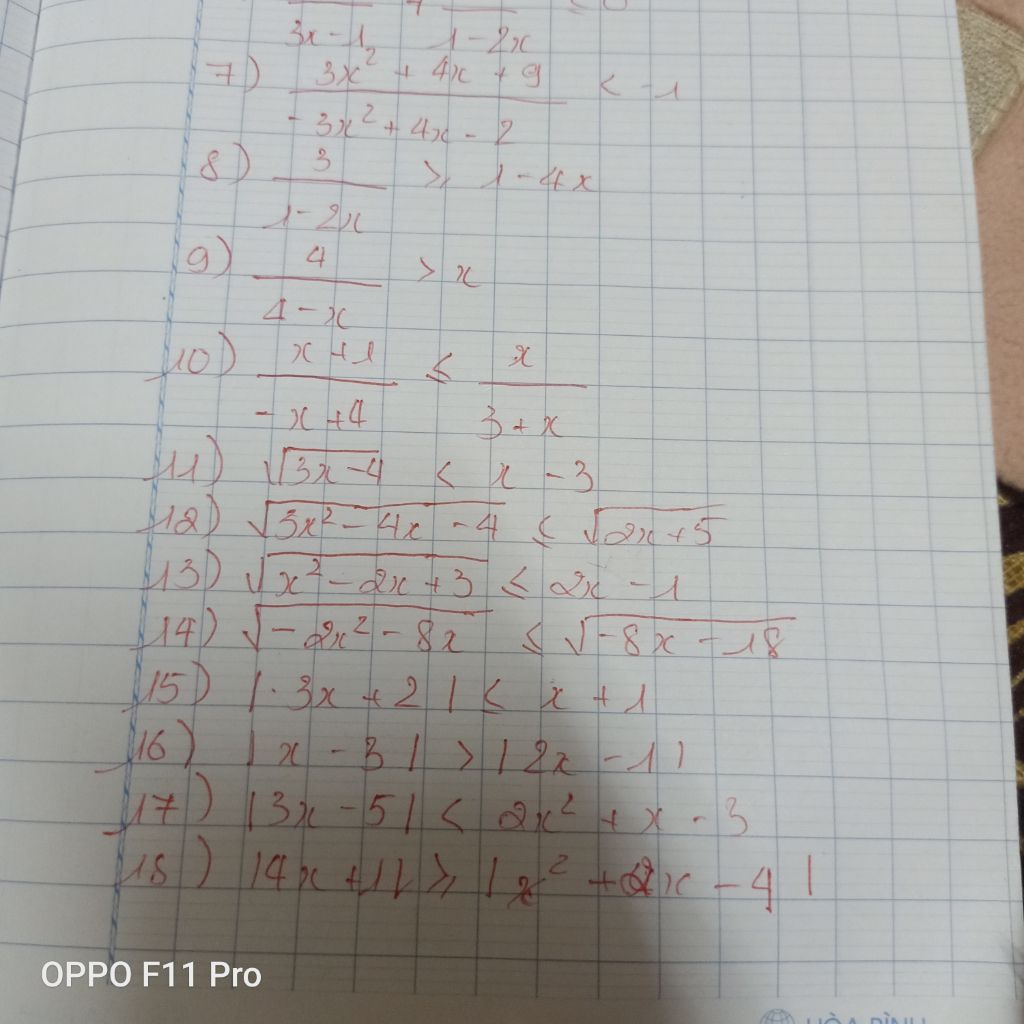 ≤ 0
3x - 1 1 - 2x
7) 3x² + 4x + 9 < -1
-3x² + 4x - 2
8) 3 ≥ 1 - 4x
1 - 2x
9) 4 > x
4 - x
10) x + 1 ≤ x
-x + 4 3 + x
11) √3x - 4 < x - 3
12) √3x² - 4x - 4 ≤ √2x + 5
13) √x² - 2x + 3 ≤ 2x - 1
14) √-2x² - 8x ≤ √-8x - 18
15) |3x + 2| ≤ x + 1
16) |x - 3| > |2x - 1|
17) |3x - 5| < 2x² + x - 3
18) |4x + 1| ≥ |x² + 2x - 4|
OPPO F11 Pro
HÒA BÌNH